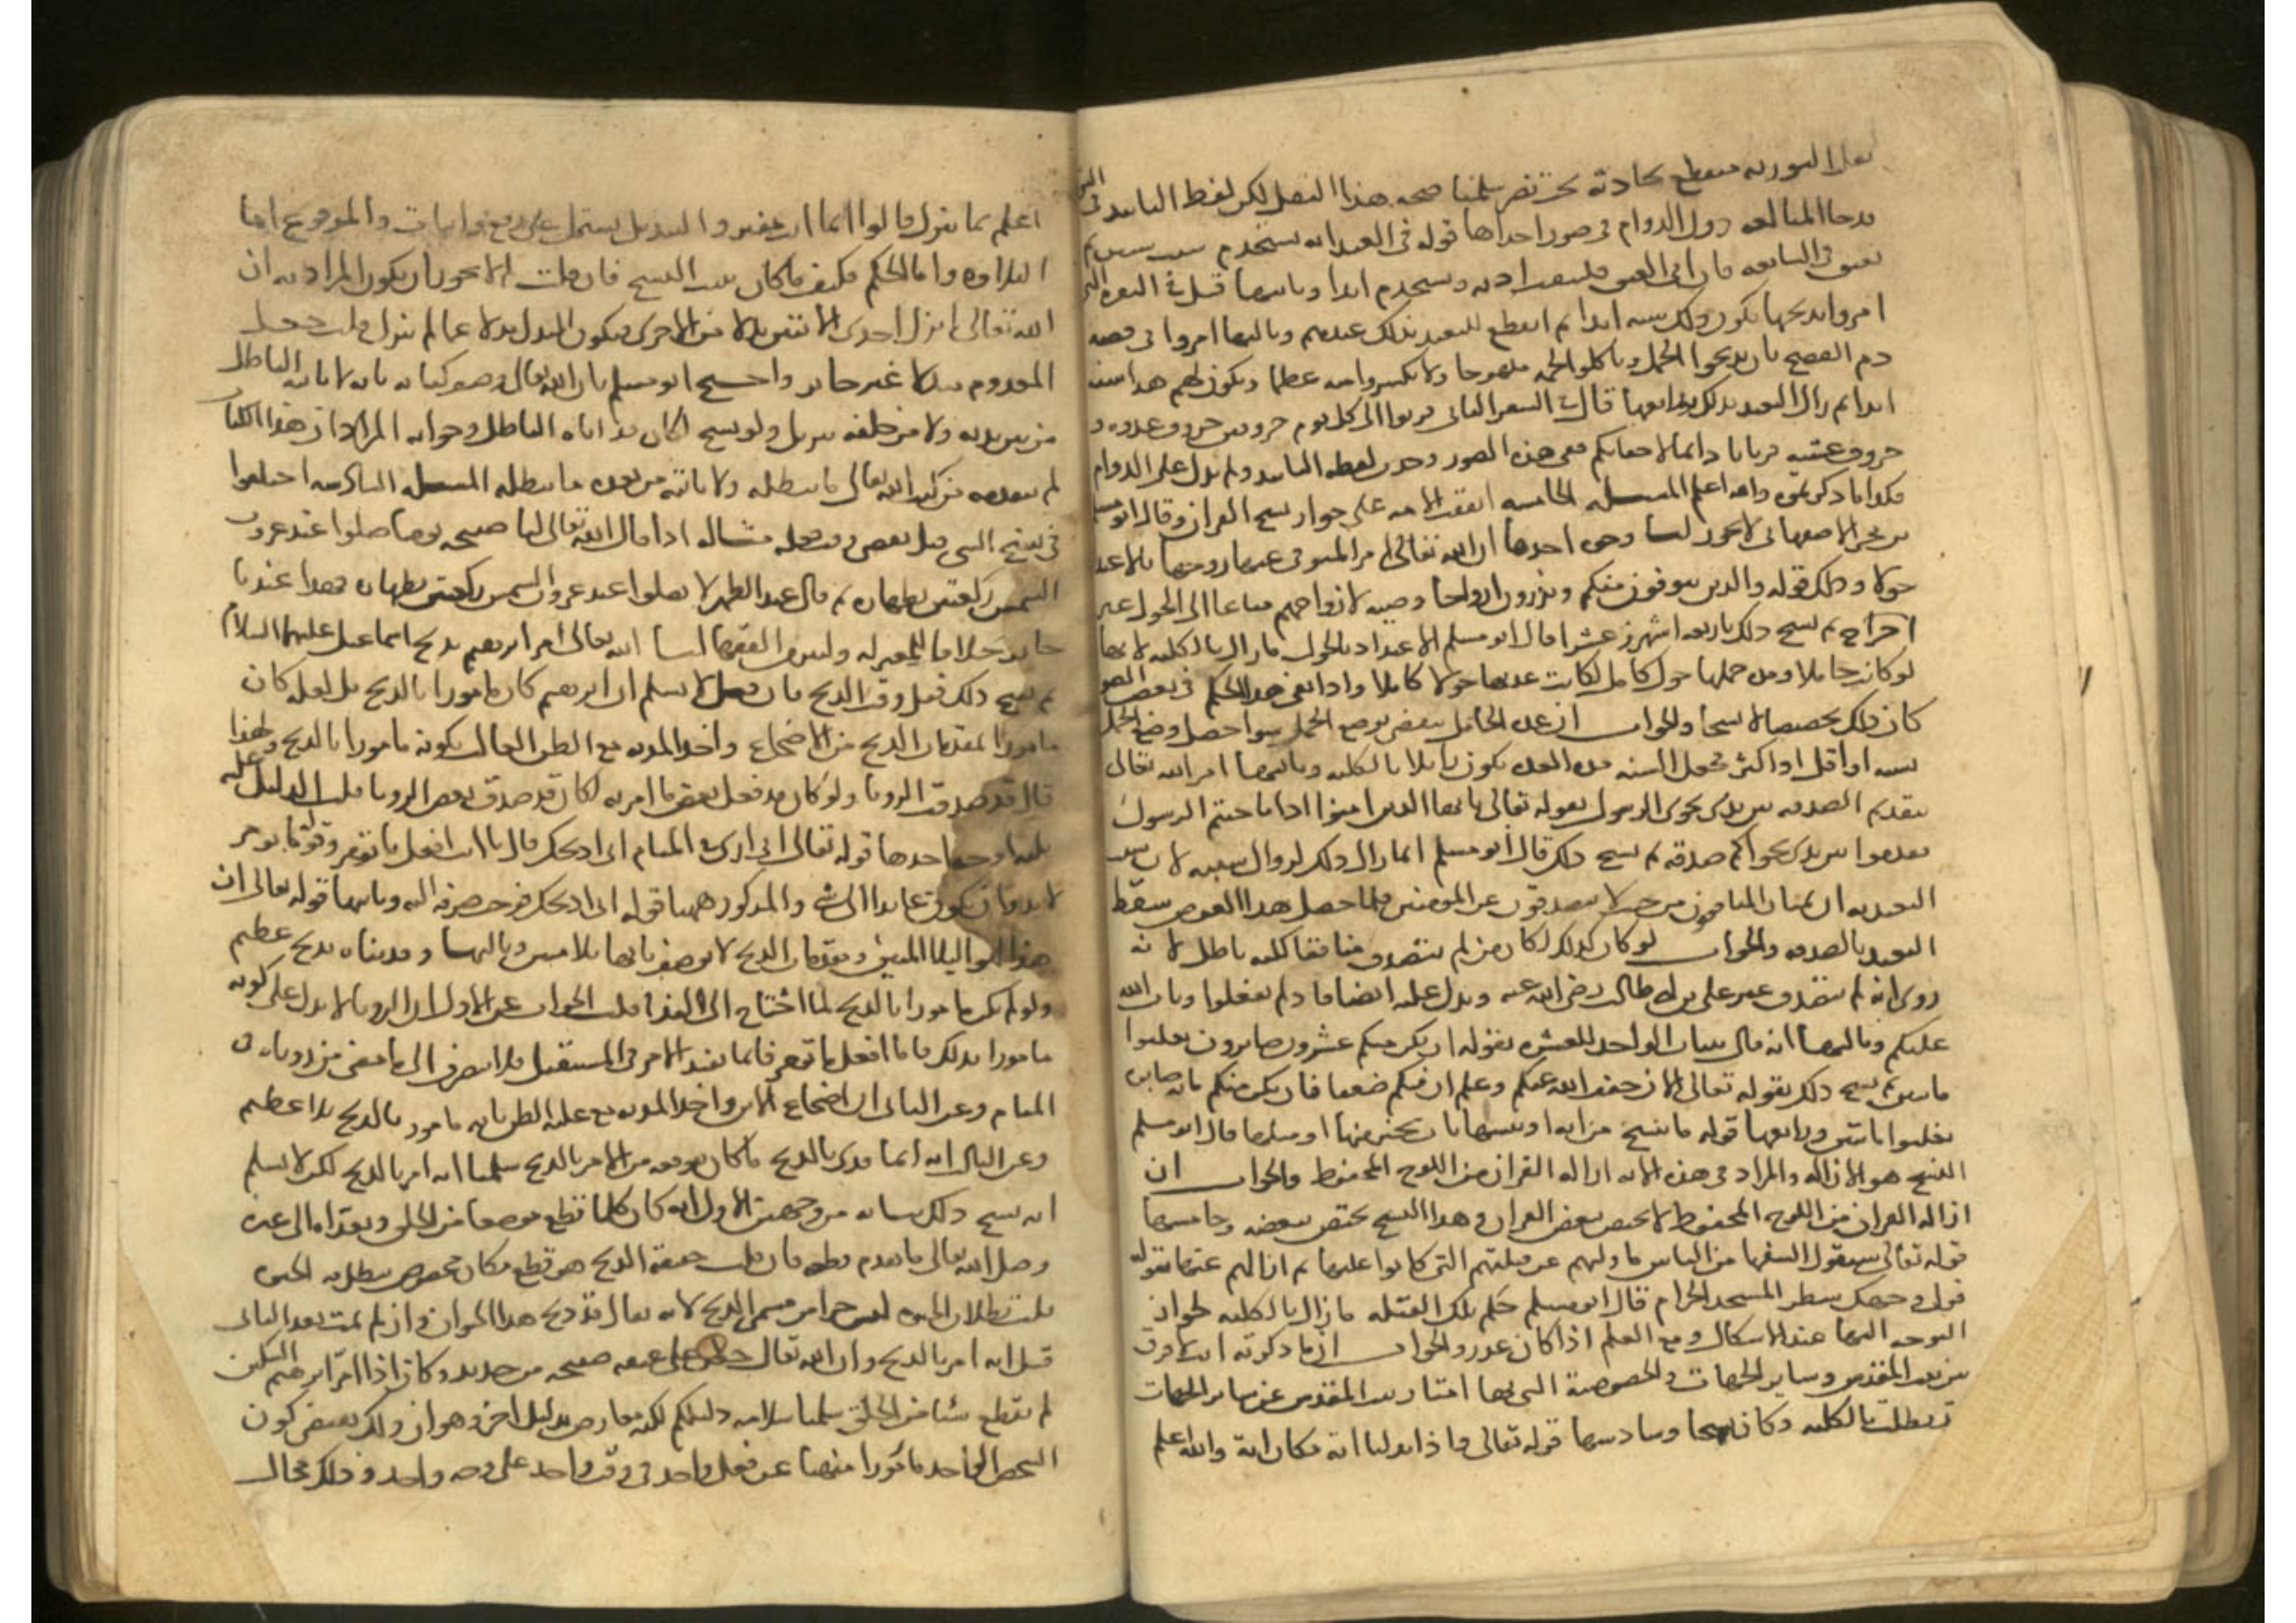 نقل التورية منقطع بحادثة بخت نصر سلمنا صحة هذا النقل لكن لفظ التابيد في التو
قد جا للمبالغة دون الدوام في صور احداها قوله في العبد انه يستخدم ست سنين ثم
يعتق في السابعة فان ابى العتق فليثقب اذنه ويستخدم ابدا وثانيها قيل في البقرة التي
امروا بذبحها يكون ذلك سنة ابدا ثم انقطع التعبد بذلك عندهم وثالثها امروا في قصة
دم الفصح بان يذبحوا الجمل وياكلوا لحمه ملهوجا ولا يكسروا منه عظما ويكون لهم هذا سنة
ابدا ثم زال التعبد بذلك ورابعها قال في السفر الثاني قربوا الي كل يوم خروفين خروف غدوة و
خروف عشية قربانا دايما لاحقابكم ففي هذه الصور وجدت لفظة التابيد ولم يدل على الدوام
فكذا ما ذكرتموه والله اعلم المسلة الخامسة اتفقت الامة على جواز نسخ القران وقال ابو مسلم
بن بحر الاصفهاني لا يجوز لنا وجوه احدها ان الله تعالى امر المتوفى عنها زوجها بالاعتداد
حولا وذلك قوله والذين يتوفون منكم ويذرون ازواجا وصية لازواجهم متاعا الى الحول غير
اخراج ثم نسخ ذلك باربعة اشهر وعشرا قال ابو مسلم الاعتداد بالحول ما زال بالكلية لانها
لو كانت حاملا ومدة حملها حول كامل لكانت عدتها حولا كاملا واذا بقي هذا الحكم في بعض الصور
كان ذلك تخصيصا لا نسخا والجواب ان عدة الحامل ينقضي بوضع الحمل سوا حصل وضع الحمل
بسنة او اقل او اكثر فجعل السنة مدة العدة يكون زايلا بالكلية وثانيها امر الله تعالى
بتقديم الصدقة بين يدي نجوى الرسول بقوله تعالى يا يها الذين امنوا اذا ناجيتم الرسول
فقدموا بين يدي نجواكم صدقة ثم نسخ ذلك قال ابو مسلم انما زال ذلك لزوال سببه لان سبب
التعبد به ان يمتاز المنافقون من حيث لا يتصدقون عن المؤمنين فلما حصل هذا الغرض سقط
التعبد بالصدقة والجواب لو كان كذلك لكان من لم يتصدق منافقا لكنه باطل لانه
روي انه لم يتصدق غير علي بن ابي طالب رضي الله عنه ويدل عليه ايضا فاذ لم تفعلوا وتاب الله
عليكم وثالثها انه قال بثبات الواحد للعشرة بقوله ان يكن منكم عشرون صابرون يغلبوا
ماتين ثم نسخ ذلك بقوله تعالى الان خفف الله عنكم وعلم ان فيكم ضعفا فان يكن منكم ماية صابرة
يغلبوا ماتين ورابعها قوله ما ننسخ من اية او ننسها نات بخير منها او مثلها قال ابو مسلم
النسخ هو الازالة والمراد في هذه الاية ازالة القران من اللوح المحفوظ والجواب ان
ازالة القران من اللوح المحفوظ لا يختص ببعض القران وهذا النسخ يختص ببعضه وخامسها
قوله تعالى سيقول السفها من الناس ما وليهم عن قبلتهم التي كانوا عليها ثم ازالهم عنها بقوله
فول وجهك شطر المسجد الحرام قال ابو مسلم حكم تلك القبلة ما زال بالكلية لجواز
التوجه اليها عند الاشكال ومع العلم اذا كان عذر والجواب ان ما ذكرته انه لا فرق
بين بيت المقدس وساير الجهات والخصوصية التي بها امتاز بيت المقدس عن ساير الجهات
قد بطلت بالكلية وكان نسخا وسادسها قوله تعالى واذا بدلنا اية مكان اية والله اعلم
اعلم بما ينزل قالوا انما انت مفتر والتبديل يشتمل على رفع واثبات والمرفوع اما
التلاوة واما الحكم فكيف ما كان ثبت النسخ فان قلت لم لا يجوز ان يكون المراد به ان
الله تعالى انزل احدى الايتين بدلا من الاخرى فيكون البدل بدلا عما لم ينزل قلت جعل
المعدوم مبدلا غير جايز واحتج ابو مسلم بان الله تعالى وصف كتابه بانه لا ياتيه الباطل
من بين يديه ولا من خلفه تنزيل ولو نسخ لكان قد اتاه الباطل وجوابه المراد ان هذا الكتاب
لم يتقدمه من كتب الله تعالى ما يبطله ولا ياتيه من بعده ما يبطله المسلة السادسة اختلفوا
في نسخ الشي قبل مضي وقت فعله مثاله اذا قال الله تعالى لنا صبيحة يومنا صلوا عند غروب
الشمس ركعتين بطهارة ثم قال عند الظهر لا تصلوا عند غروب الشمس ركعتين بطهارة فهذا عندنا
جايز خلافا للمعتزلة ولبعض الفقها لنا ان الله تعالى امر ابرهيم بذبح اسماعيل عليهما السلام
ثم نسخ ذلك قبل وقت الذبح فان قيل لا نسلم ان ابرهيم كان مامورا بالذبح بل لعله كان
مامورا بمقدمات الذبح من الاضجاع واخذ المدية مع الظن الغالب بكونه مامورا بالذبح ولهذا
قال قد صدقت الرويا ولو كان قد فعل بعض ما امر به لكان قد صدق بعض الرويا قلت الدليل عليه
ثلثة اوجه احدها قوله تعالى اني ارى في المنام اني اذبحك قال يا ابت افعل ما تؤمر وقوله ما تؤمر
لا بد وان يكون عايدا الى شي والمذكور ههنا قوله اني اذبحك فوجب صرفه اليه وثانيها قوله تعالى ان
هذا لهو البلا المبين ومقدمات الذبح لا يوصف بانها بلا مبين وثالثها وفديناه بذبح عظيم
ولو لم يكن مامورا بالذبح لما احتاج الى الفدا قلت الجواب عن الاول ان الرويا لا يدل على كونه
مامورا بذلك فاما افعل ما تؤمر فانما يفيد الامر في المستقبل فلا ينصرف الى ما مضى من روياه في
المنام وعن الثاني ان اضجاع الابن واخذ المدية مع غلبة الظن بانه مامور بالذبح بلا عظيم
وعن الثالث انه انما فدي بالذبح ما كان يتوقعه من الامر بالذبح سلمنا انه امر بالذبح لكن لا نسلم
انه نسخ ذلك بيانه من وجهين الاول انه كان كلما قطع موضعا من الحلق وتعداه الى غيره
وصل الله تعالى ما تقدم قطعه فان قلت حقيقة الذبح هو قطع مكان مخصوص يبطل به الحيوة
قلت بطلان الحيوة ليس جزا من مسمى الذبح لانه يقال قد ذبح هذا الحيوان وان لم يمت بعد الثاني
قيل انه امر بالذبح وان الله تعالى جعل على عنقه صفيحة من حديد وكان اذا امر ابرهيم السكين
لم يقطع شيا من الحلق سلمنا سلامة دليلكم لكنه معارض بدليل اخر وهو ان ذلك يقتضي كون
الشخص الواحد مامورا منهيا عن فعل واحد في وقت واحد على وجه واحد وذلك محال